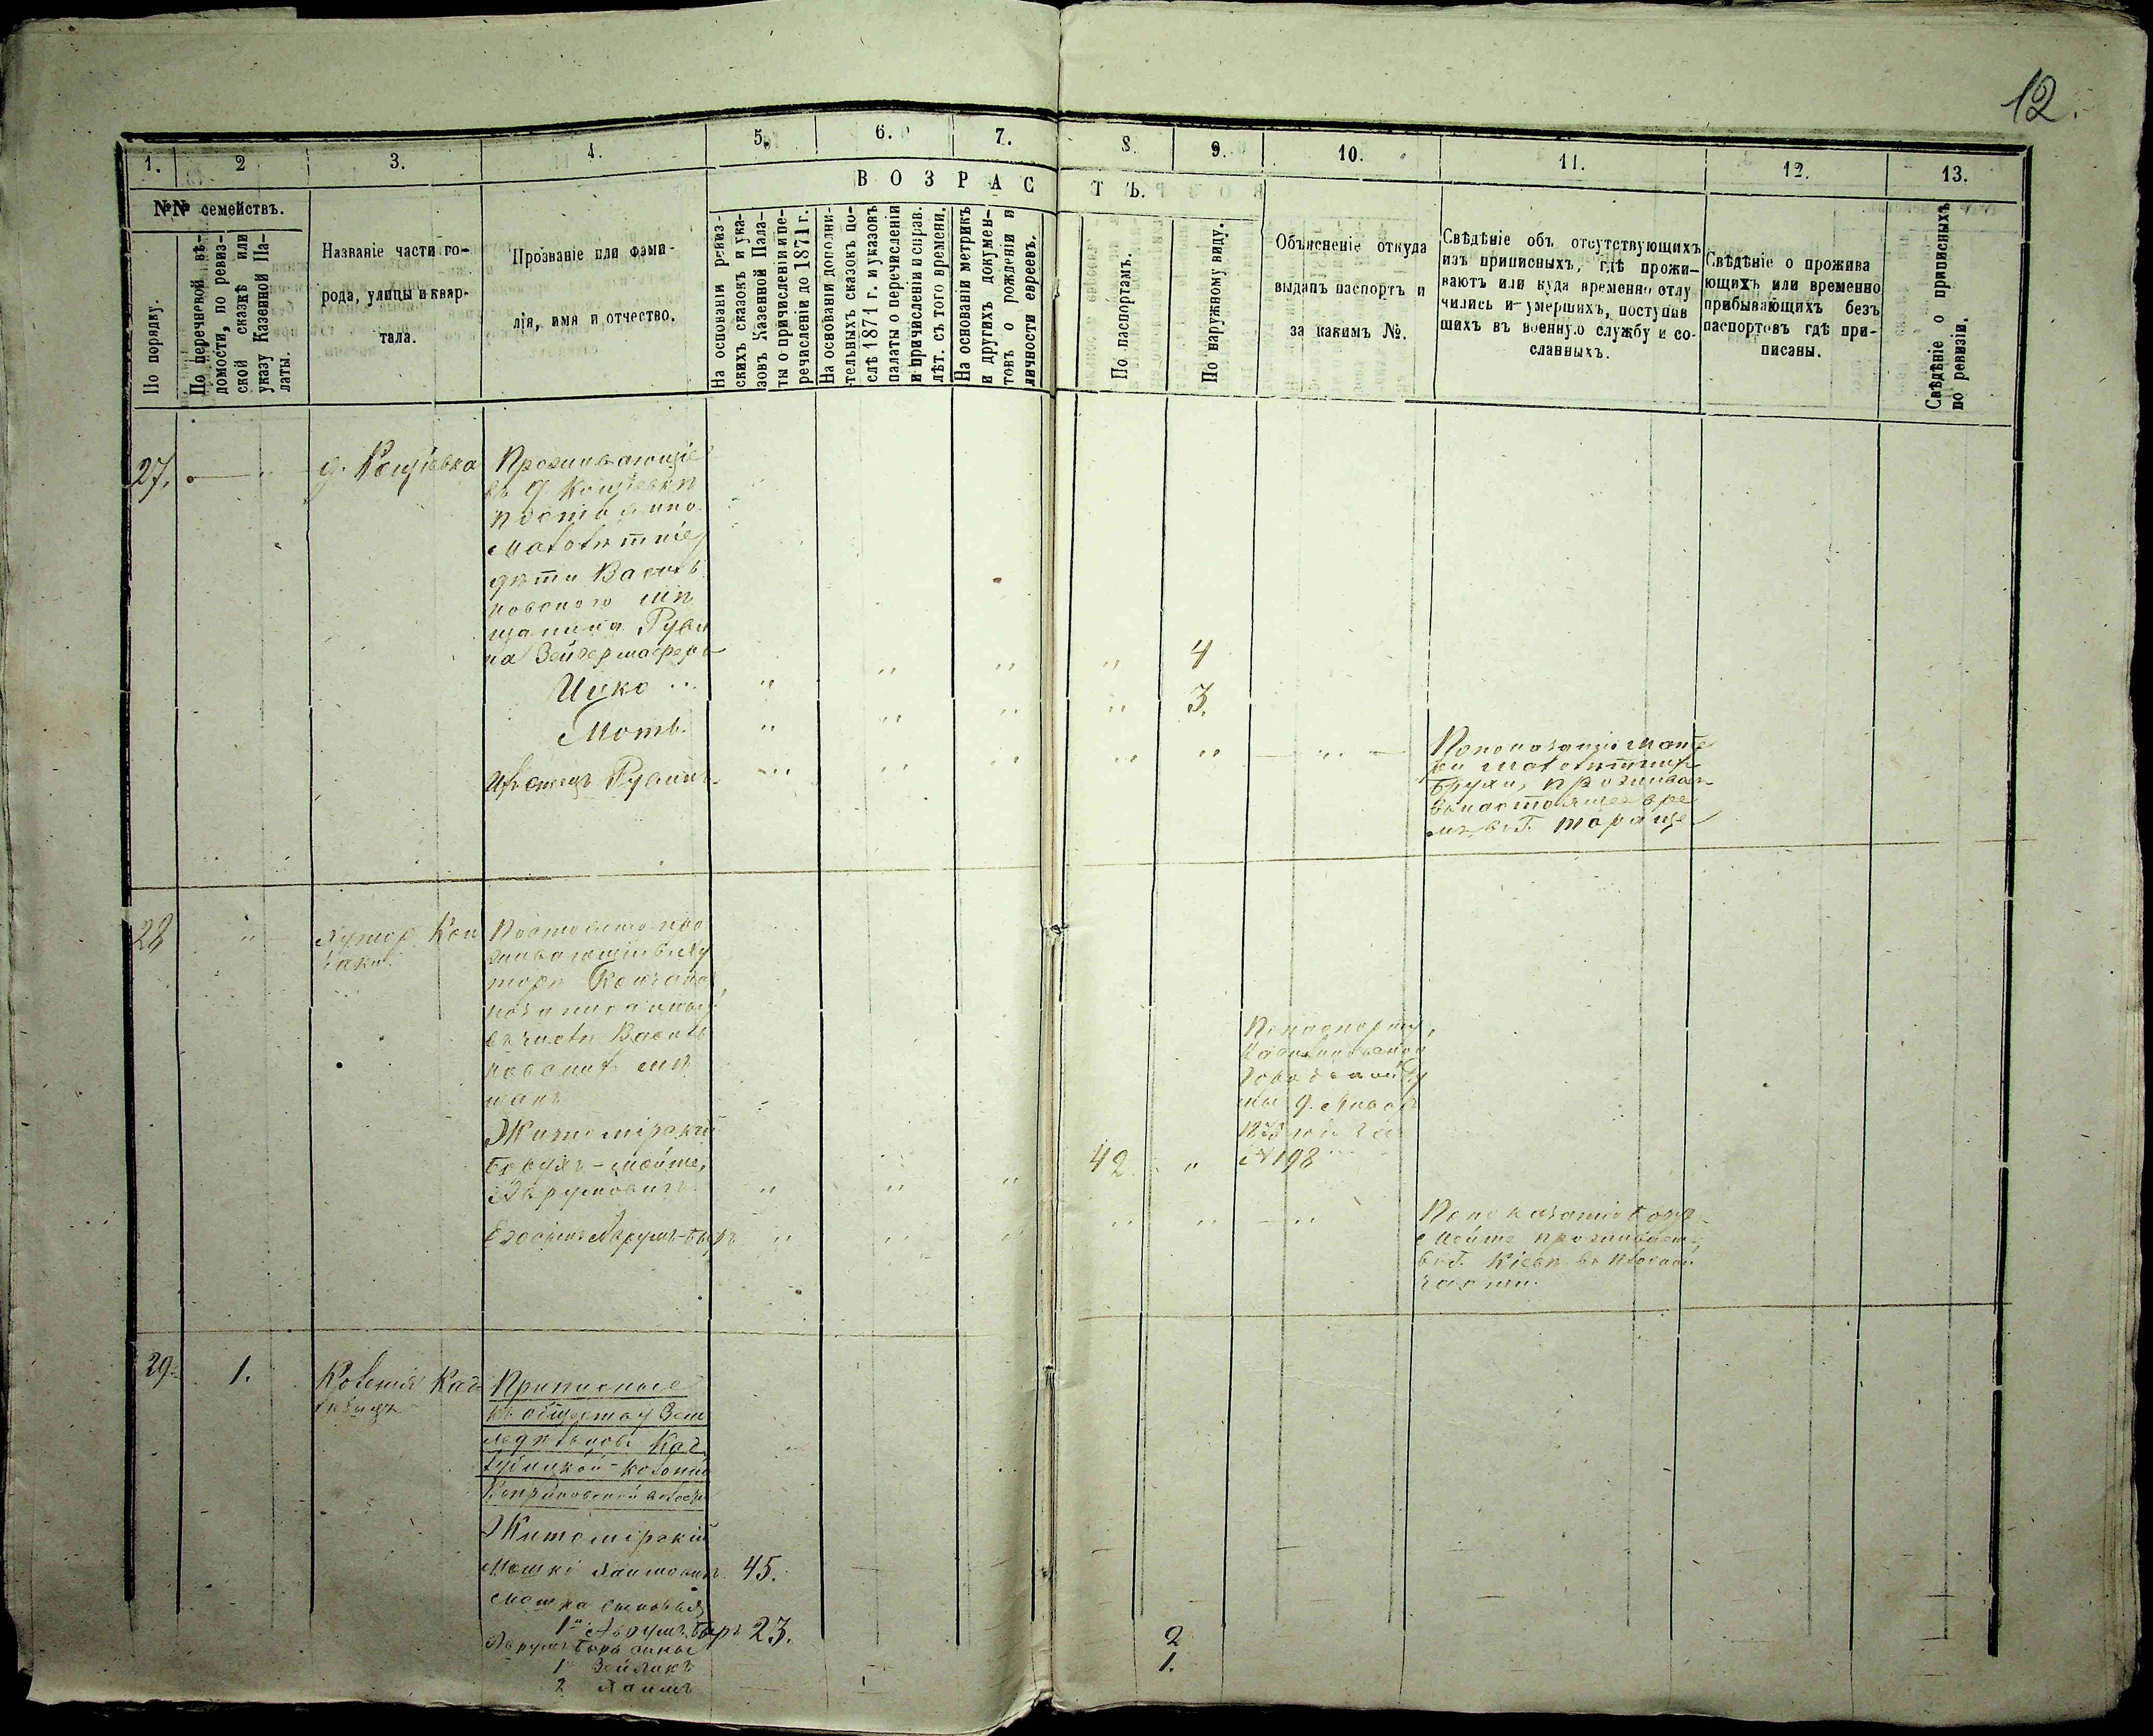 12.
1.
2
3.
4.
5.
6.
7.
8.
9.
10.
11.
12.
13.
ВОЗРАСТЪ.
№№ семействъ.
По порядку.
По перечневой вѣ-
домости, по ревиз-
ской сказкѣ или
указу Казенной Па-
латы.
Названіе части го-
рода, улицы и квар-
тала.
Прозваніе или фами-
лія, имя и отчество.
На основаніи ревиз-
скихъ сказокъ и ука-
зовъ Казенной Пала-
ты о причисленіи и пе-
речисленіи до 1871 г.
На основаніи дополни-
тельныхъ сказокъ по-
слѣ 1871 г. и указовъ
палаты о перечисленіи
и причисленіи и справ.
лѣт. съ того времени.
На основаніи метрикъ
и другихъ докумен-
товъ о рожденіи и
личности евреевъ.
По паспортамъ.
По наружному виду.
Объясненіе откуда
выданъ паспортъ и
за какимъ №.
Свѣдѣніе объ отсутствующихъ
изъ приписныхъ, гдѣ прожи-
ваютъ или куда временно отлу
чились и умершихъ, поступив
шихъ въ военную службу и со-
сланныхъ.
Свѣдѣніе о прожива
ющихъ или временно
прибывающихъ безъ
паспортовъ гдѣ при-
писаны.
Свѣдѣніе о приписныхъ
по ревизіи.
27. — " д. Кощіевка
Проживающіе
въ д. Кощіевкѣ
постоянно
малолѣтніе
дѣти Василь
ковского мѣ
щанина Руви
на
Ицко " " " " 4
Моть. " " " " 3.
Ихъ отецъ Рувинъ " " " " " — " —
По показанію мате
ри малолѣтнихъ
Брухи, проживаетъ
въ настоящее вре
мя въ г. Тараще
28 "
Хуторъ
Постоянно про
живающіе въ ху
торѣ
записанные
въ числѣ Василь
ковскихъ мѣ
щанъ
Житомірскій
Мойше,
Аврумовичъ " " " 42 "
По паспорту,
Васильковской
Городской Ду
мы
№ 198
Аврумъ-Беръ " " " " " — "
По показанію
Мойше проживаетъ
въ г. Кіевѣ въ Плоской
части.
29. 1.
Колонія
Приписные
къ обществу Зем
ледѣльцовъ
колоніи
волости
Житомірскій
Мошко Хаимовичъ 45.
Мошка сыновья
1й Аврумъ Беръ 23.
Аврумъ Бера сыны
1 Зейликъ 2
2 Хаимъ 1.